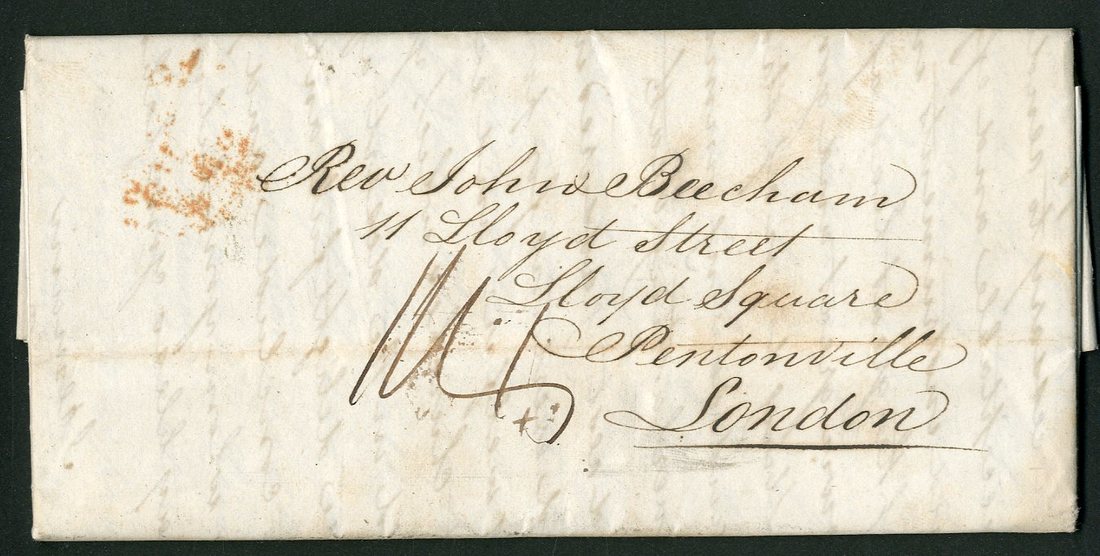 Rev John Beecham
11 Lloyd Street
Lloyd Square
Pentonville
London